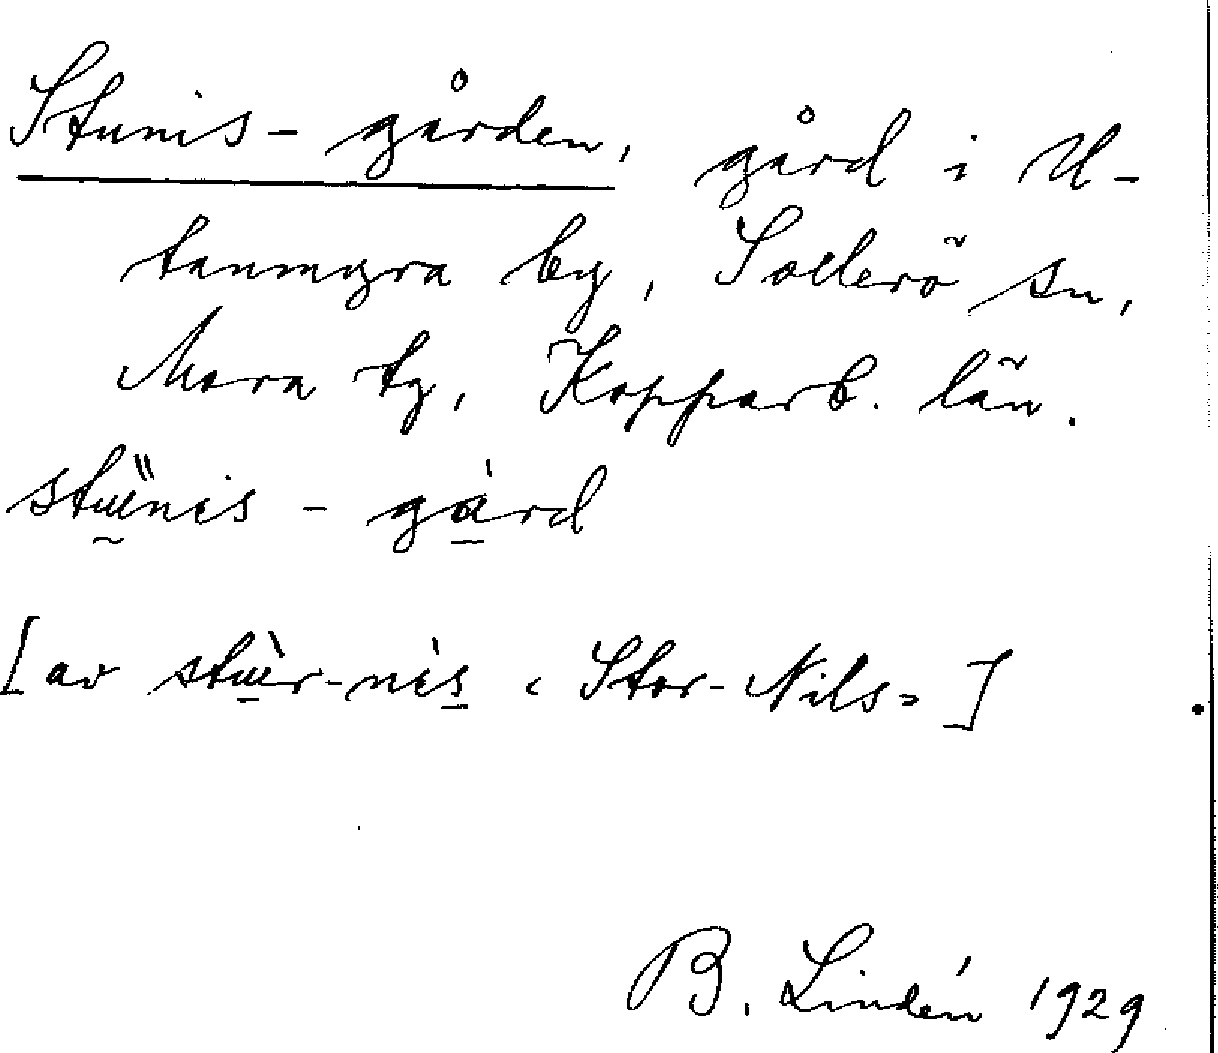 Stunis-gården, gård i U-
tanmyra by, Sollerö sn,
Mora tg, Kopparb. län.
stu�竟nis-gård
[av stùr-nis «Stor-Nils»]
B. Lindén 1929